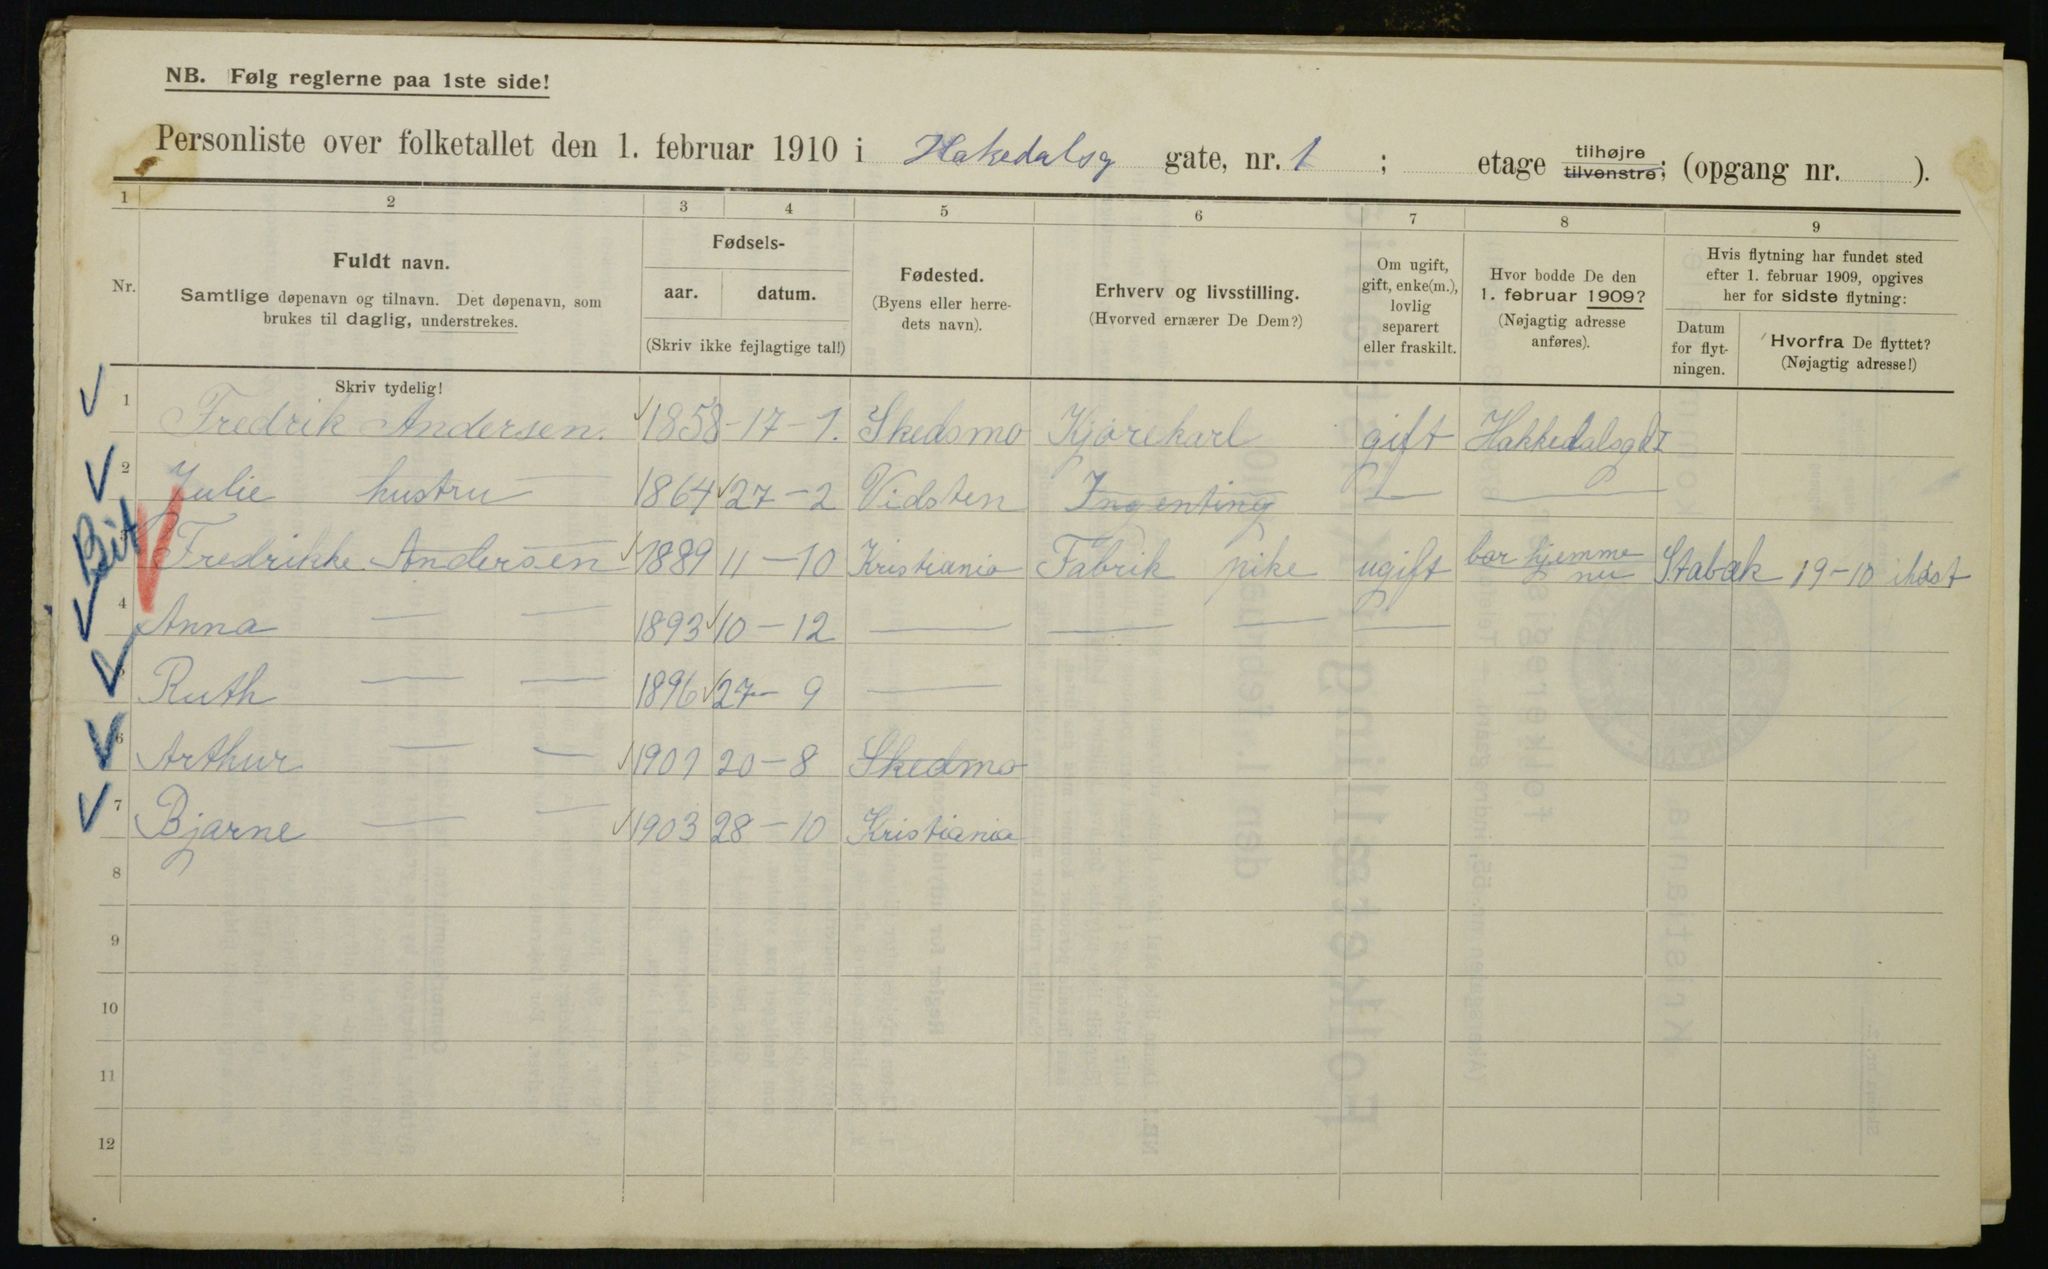 NB. Følg reglerne paa 1ste side!
Personliste over folketallet den 1. februar 1910 i Hakedalsg gate, nr. 1 ; etage tilhøjre tilvenstre; (opgang nr. ).
1 2 3 4 5 6 7 8 9
Nr.
Fuldt navn.
Samtlige døpenavn og tilnavn. Det døpenavn, som
brukes til daglig, understrekes.
Skriv tydelig!
Fødsels-
aar. datum.
(Skriv ikke fejlagtige tal!)
Fødested.
(Byens eller herre-
dets navn).
Erhverv og livsstilling.
(Hvorved ernærer De Dem?)
Om ugift,
gift, enke(m.),
lovlig
separert
eller fraskilt.
Hvor bodde De den
1. februar 1909?
(Nøjagtig adresse
anføres).
Hvis flytning har fundet sted
efter 1. februar 1909, opgives
her for sidste flytning:
Datum
for flyt-
ningen.
Hvorfra De flyttet?
(Nøjagtig adresse!)
1 Fredrik Andersen. 1858 -17-1. Skedsmo Kjørekarl gift Hakkedalsgd 1
2 Julie hustru 1864 27-2 Vidsten Ingenting
3 Fredrikke Andersen 1889 11-10 Kristiania Fabrik pike ugift bor hjemme nu Stabæk 19-10 ihøst
4 Anna 1893 10-12
5 Ruth 1896 27-9
6 Arthur 1901 20-8 Skedmo
7 Bjarne 1903 28-10 Kristiania
8
9
10
11
12